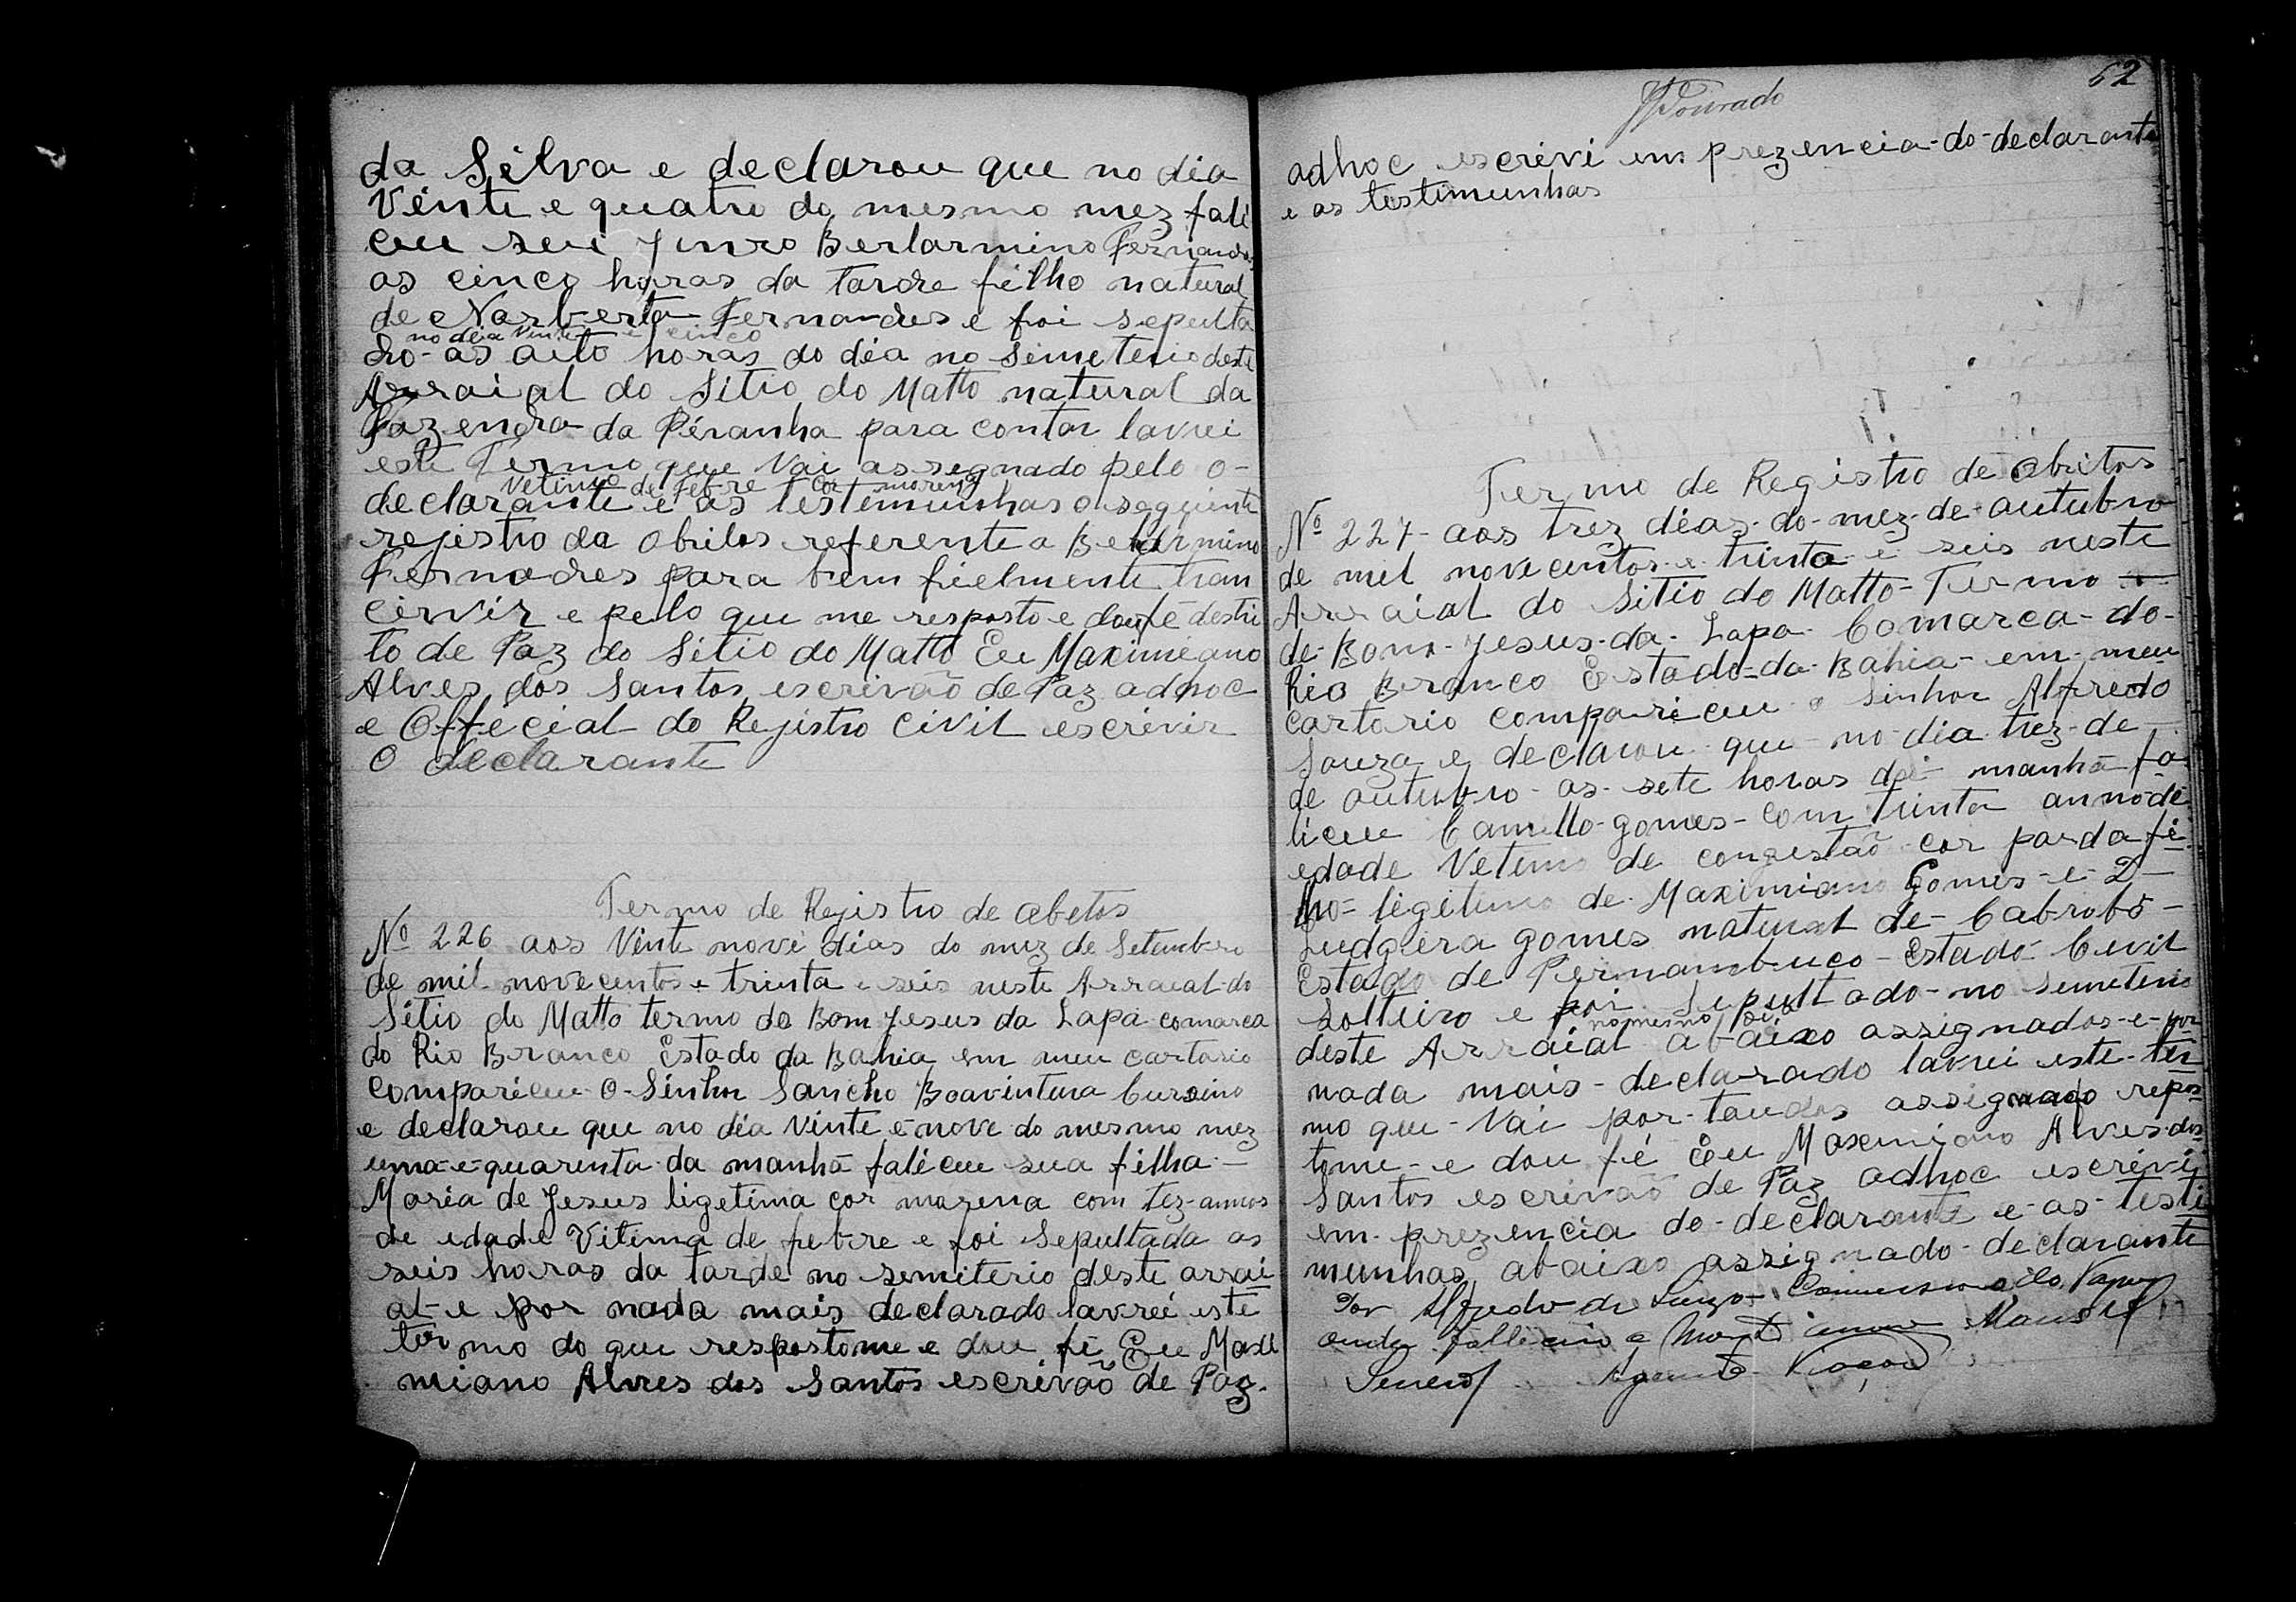 da Silva e declarou que no dia
Vinte e quatro do mesmo mez fali
ceu seu Jenro Berlarmino Fernandes
as cinco horas da tarde filho natural
de Norberta Fernandes e foi sepulta
no dia Vinte e cinco
do-as oito horas do dia no Simeterio deste
Arraial do Sitio do Matto natural da
Fazenda da Piranha para contar lavrei
este Termo que Vai assegnado pelo o-
Vetimo de Febre cor morena
declarante e as testemunhas o seguinte
rejistro da obitos referente a Belarmino
Fernades para bem fielmente tran
cirvir e pelo que me resposto e dou fé destri
to de Paz do Sitio do Matto Eu Maximiano
Alves dos Santos escrivão de Paz adhoc
e Offecial do Rejistro Civil escrivir
O declarante
Termo de Rejistro de abetos
Nº 226 aos Vinte nove dias do mez de Setembro
de mil novecentos e trinta e seis neste Arraial-do
Sitio do Matto termo do Bom Jesus da Lapa comarca
do Rio Branco Estado da Bahia em meu cartorio
compariceu-O-Sinhor Sancho Boavintura
e declarou que no dia Vinte e-nove do mesmo mez
uma-e-quarenta-da manhã faliceu sua filha-
Maria de Jesus ligetima cor morena com tez-annos
de edade Vitima de febre e foi Sepultada as
seis horas da tarde no semiterio deste arrai
al-e por nada mais declarado lavrei este
termo do que respostome e dou fé Eu Maxi
miano Alves dos Santos escrivão de Paz.
52
Dourado
adhoc escrivi em prezencia-do-declarante
e as testimunhas
Termo de Registro de Obitos
Nº 227-aos trez dias-do-mez-de-autubro
de mil novecentos-e-trinta-e seis neste
Arraial do Sitio do Matto-Termo
de-Bom-Jesus-da-Lapa-Comarca-do-
Rio Branco Estado-da-Bahia-em-meu
cartorio compariceu-o Sinhor Alfredo
Souza e declarou que-no-dia trez-de-
de autubro-as-sete horas da-manhã-fa
liceu Camillo-gomes-com trinta anno-de
edade Vetimo de congestão-cor parda fi-
lho-legitimo de-Maximiano Gomes-e-D-
Ludgera gomes natural de-Cabrobó-
Estado de Pernambuco-Estado-Civil
Solteiro e foi Sepultado-no Semeterio
no mesmo dia
deste Arraial abaixo assignados-e-por
nada mais-declarado lavrei este-ter
mo que-Vai por-taudos assignado repos
tome-e dou fé Eu Maximiano Alves-dos
Santos escrivão de Paz adhoc escrevi
em-prezencia do-declarante e-as-testi
munhas, abaixo assignado-declarante
Por Alfredo de Souza do Vapor
onde falleceu a